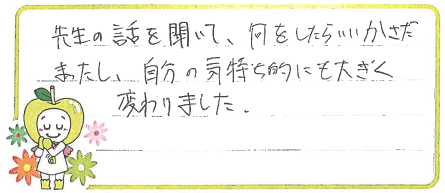 先生の話を聞いて、何をしたらいいかさだ
まったし、自分の気持ち的にも大きく
変わりました.